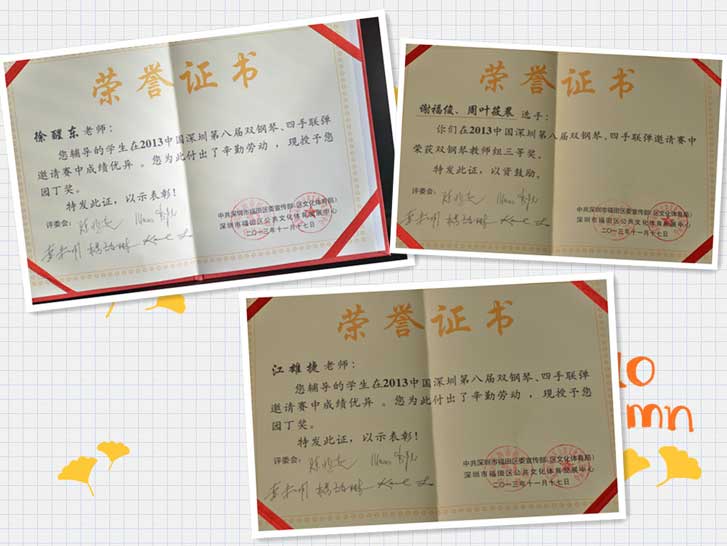 荣誉证书
徐醒东 老师:
您辅导的学生在2013中国深圳第八届双钢琴、四手联弹
邀请赛中成绩优异 。您为此付出了辛勤劳动 ,现授予您
园丁奖。
特发此证,以示表彰!
评委会:
中共深圳市福田区委宣传部(区文化体育局)
深圳市福田区公共文化体育发展中心
二〇一三年十一月十七日
荣誉证书
谢福俊、周叶莜果 选手:
你们在2013中国深圳第八届双钢琴、四手联弹邀请赛中
荣获双钢琴教师组三等奖。
特发此证,以资鼓励。
评委会:
中共深圳市福田区委宣传部(区文化体育局)
深圳市福田区公共文化体育发展中心
二〇一三年十一月十七日
荣誉证书
江雄捷 老师:
您辅导的学生在2013中国深圳第八届双钢琴、四手联弹
邀请赛中成绩优异 。您为此付出了辛勤劳动 ,现授予您
园丁奖。
特发此证,以示表彰!
评委会:
中共深圳市福田区委宣传部(区文化体育局)
深圳市福田区公共文化体育发展中心
二〇一三年十一月十七日